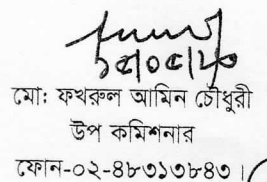 ১৫|০৫|২৩
মো: ফখরুল আমিন চৌধুরী
উপ কমিশনার
ফোন-০২-৪৮৩১৩৮৪৩।